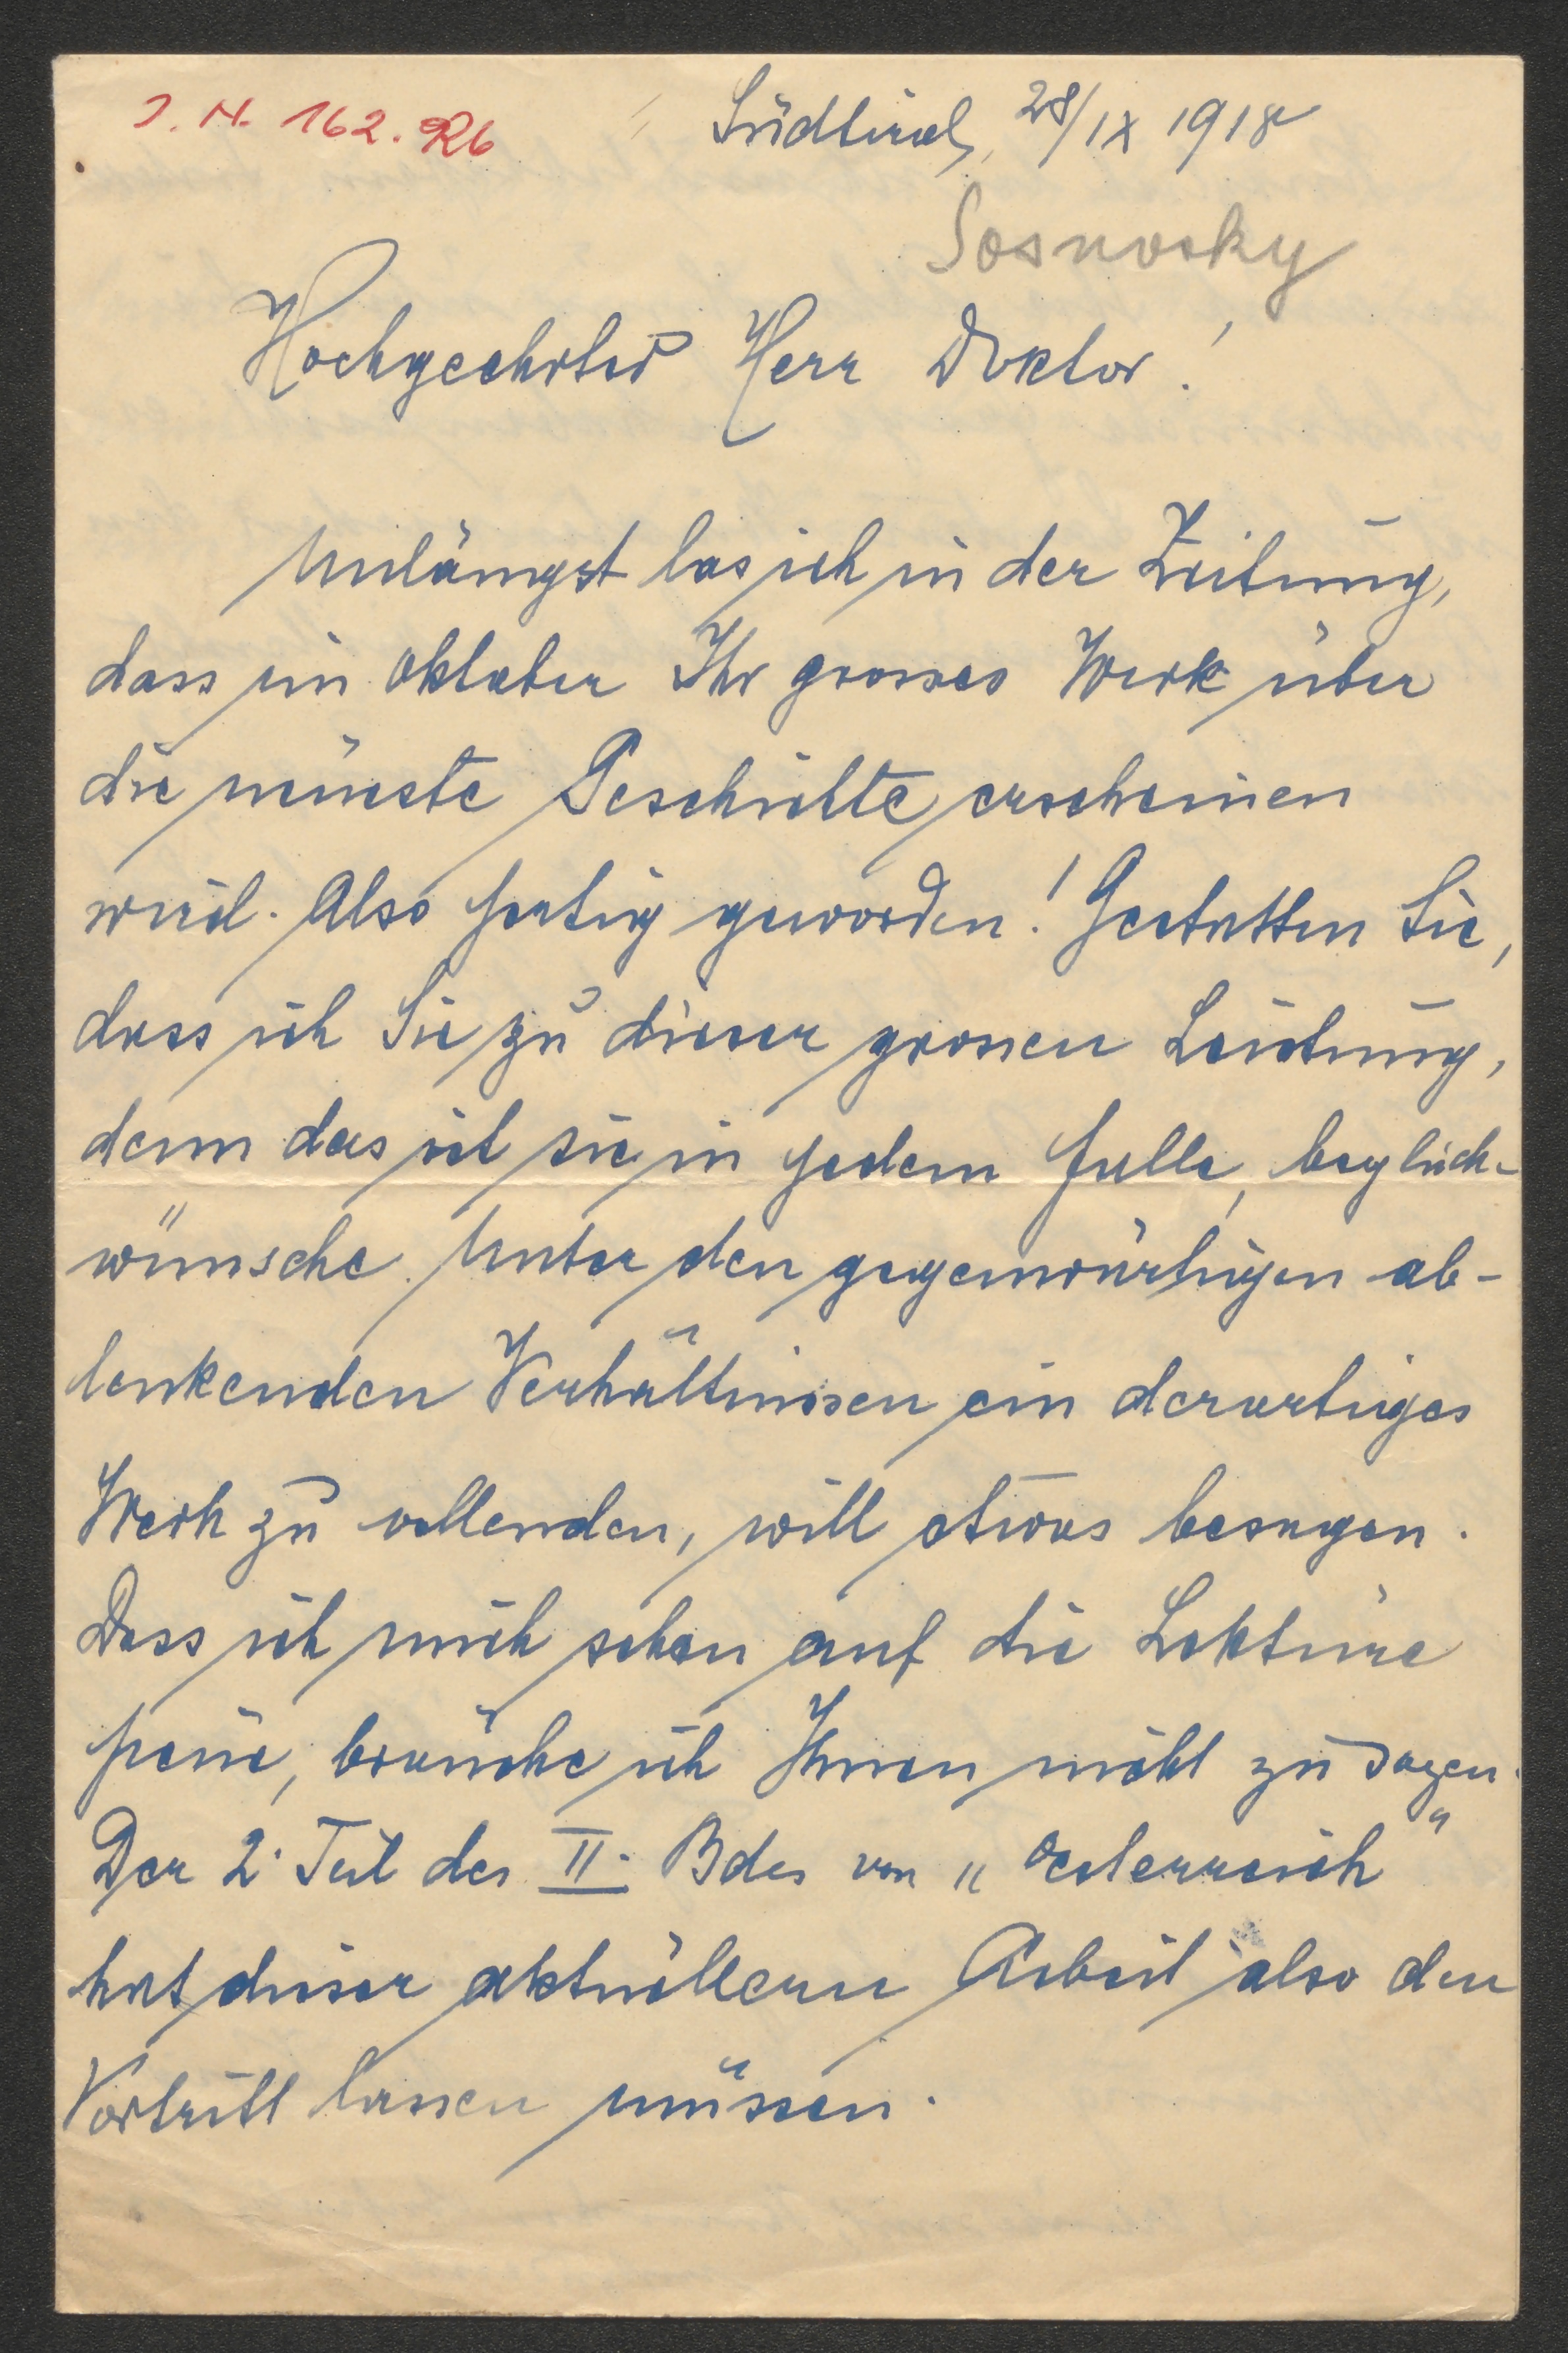 J. N. 162.826
Südtirol, 28/IX 1918
Sosnosky
Hochgeehrter Herr Doktor!
Unlängst las ich in der Zeitung,
dass im Oktober Ihr grosses Werk über
die neueste Geschichte erscheinen
wird. Also fertig geworden! Gestatten Sie,
dass ich Sie zu dieser grossen Leistung,
denn das ist sie in jedem Falle, beglück-
wünsche. Unter den gegenwärtigen ab-
lenkenden Verhältnissen ein derartiges
Werk zu vollenden, will etwas besagen.
Dass ich mich schon auf die Lektüre
freue, brauche ich Ihnen nicht zu sagen.
Der 2. Teil des II. Bdes von „Oesterreich"
hat dieser aktuelleren Arbeit also den
Vortritt lassen müssen.